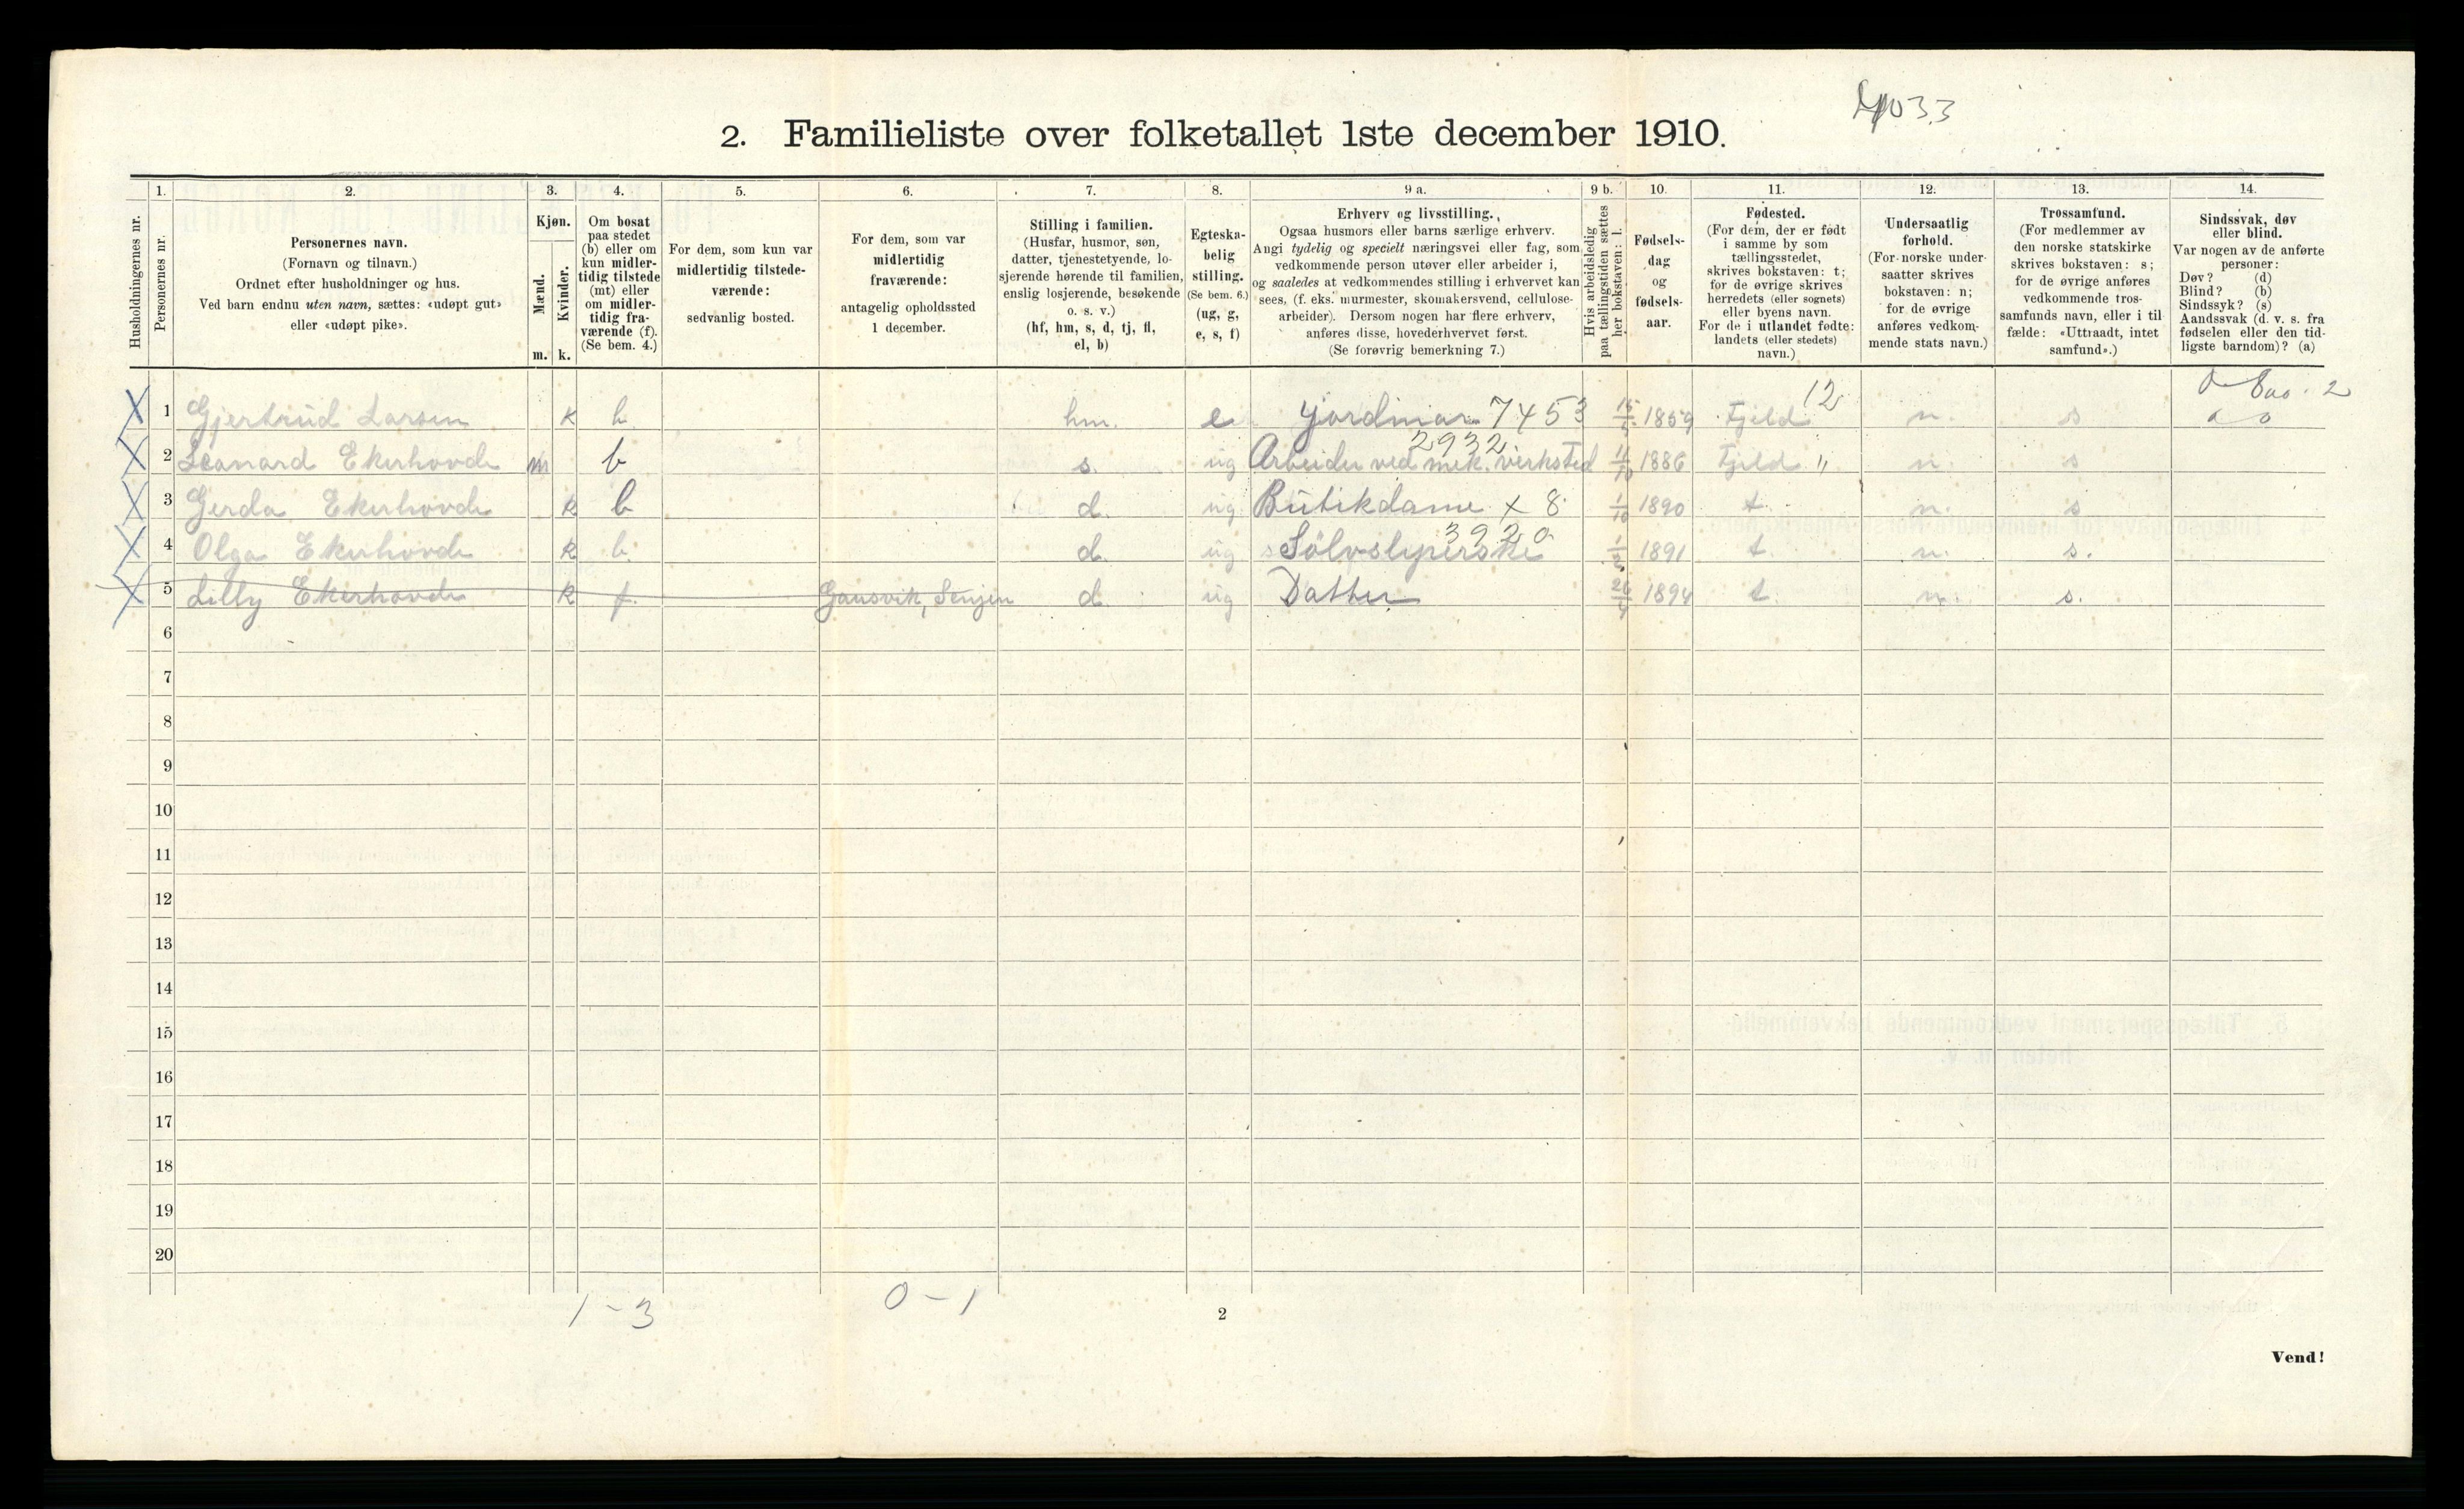 4033
2. Familieliste over folketallet 1ste december 1910.
Husholdningernes nr.
1.
Personernes nr.
2.
Personernes navn.
(Fornavn og tilnavn.)
Ordnet efter husholdninger og hus.
Ved barn endnu uten navn, sættes: «udøpt gut»
eller «udøpt pike».
3.
Kjøn.
Mænd.
Kvinder.
m. k.
4.
Om bosat
paa stedet
(b) eller om
kun midler-
tidig tilstede
(mt) eller
om midler-
tidig fra-
værende (f).
(Se bem. 4.)
5.
For dem, som kun var
midlertidig tilstede-
værende:
sedvanlig bosted.
6.
For dem, som var
midlertidig
fraværende:
antagelig opholdssted
1 december.
7.
Stilling i familien.
(Husfar, husmor, søn,
datter, tjenestetyende, lo-
sjerende hørende til familien,
enslig losjerende, besøkende
o. s. v.)
(hf, hm, s, d, tj, fl,
el, b)
8.
Egteska-
belig
stilling.
(Se bem. 6.)
(ug, g,
e, s, f)
9 a.
Erhverv og livsstilling.
Ogsaa husmors eller barns særlige erhverv.
Angi tydelig og specielt næringsvei eller fag, som
vedkommende person utøver eller arbeider i,
og saaledes at vedkommendes stilling i erhvervet kan
sees, (f. eks. murmester, skomakersvend, cellulose-
arbeider). Dersom nogen har flere erhverv,
anføres disse, hovederhvervet først.
(Se forøvrig bemerkning 7.)
9 b.
Hvis arbeidsledig
paa tællingstiden sættes
her bokstaven: l.
10.
Fødsels-
dag
og
fødsels-
aar.
11.
Fødested.
(For dem, der er født
i samme by som
tællingsstedet,
skrives bokstaven: t;
for de øvrige skrives
herredets (eller sognets)
eller byens navn.
For de i utlandet fødte:
landets (eller stedets)
navn.)
12.
Undersaatlig
forhold.
(For norske under-
saatter skrives
bokstaven: n;
for de øvrige
anføres vedkom-
mende stats navn.)
13.
Trossamfund.
(For medlemmer av
den norske statskirke
skrives bokstaven: s;
for de øvrige anføres
vedkommende tros-
samfunds navn, eller i til-
fælde: «Uttraadt, intet
samfund».)
14.
Sindssvak, døv
eller blind.
Var nogen av de anførte
personer:
Døv? (d)
Blind? (b)
Sindssyk? (s)
Aandssvak (d. v. s. fra
fødselen eller den tid-
ligste barndom)? (a)
12
X 1 Gjertrud Larsen k b hm. e Jordmor 7453 15/5 1859 Fjeld n. s
2932
X 2 Leonard Ekerhovde m b s. ug Arbeider ved mek. verksted 11/10 1886 Fjeld " n. s
X 3 Gerda Ekerhovde k b d. ug Butikdame x 8 1/10 1890 t. n. s
3920
X 4 Olga Ekerhovde k b. d. ug Sølvsliperske 1891 t. n. s.
X 5 Lilly Ekerhovde k f. Gausvik, Senjen d. ug Datter 1894 t. n. s.
6
7
8
9
10
11
12
13
14
15
16
17
18
19
20
1 - 3
0 - 1
2
Vend!